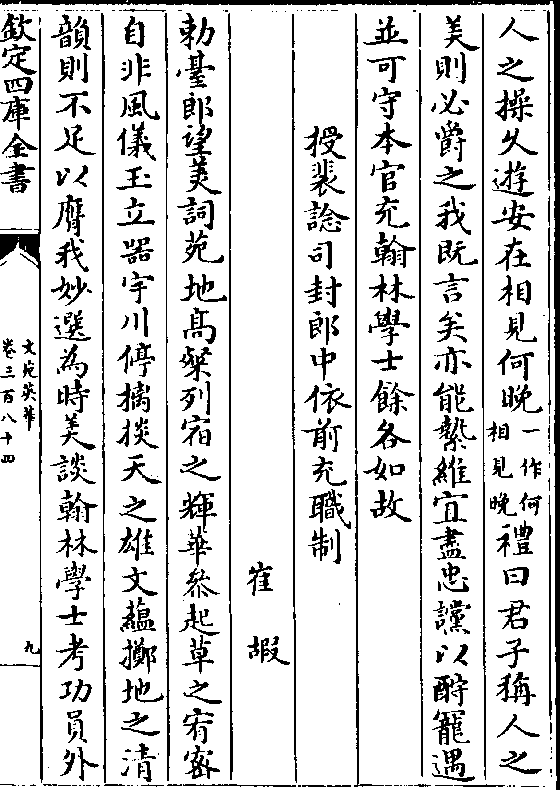 人之操久遊安在相見何晚一作何相見晚禮曰君子稱人之
美則必爵之我既言矣亦能縶維宜盡忠讜以酧寵遇
並可守本官充翰林學士餘各如故
授裴諗司封郎中依前充職制
崔嘏
勅臺郎望美詞苑地髙粲列宿之輝華叅起草之宥密
自非風儀玉立器宇川停摛掞天之雄文藴擲地之清
韻則不足以膺我妙選為時美談翰林學士考功員外
欽定四庫全書
文苑英華
卷三百八十四
九